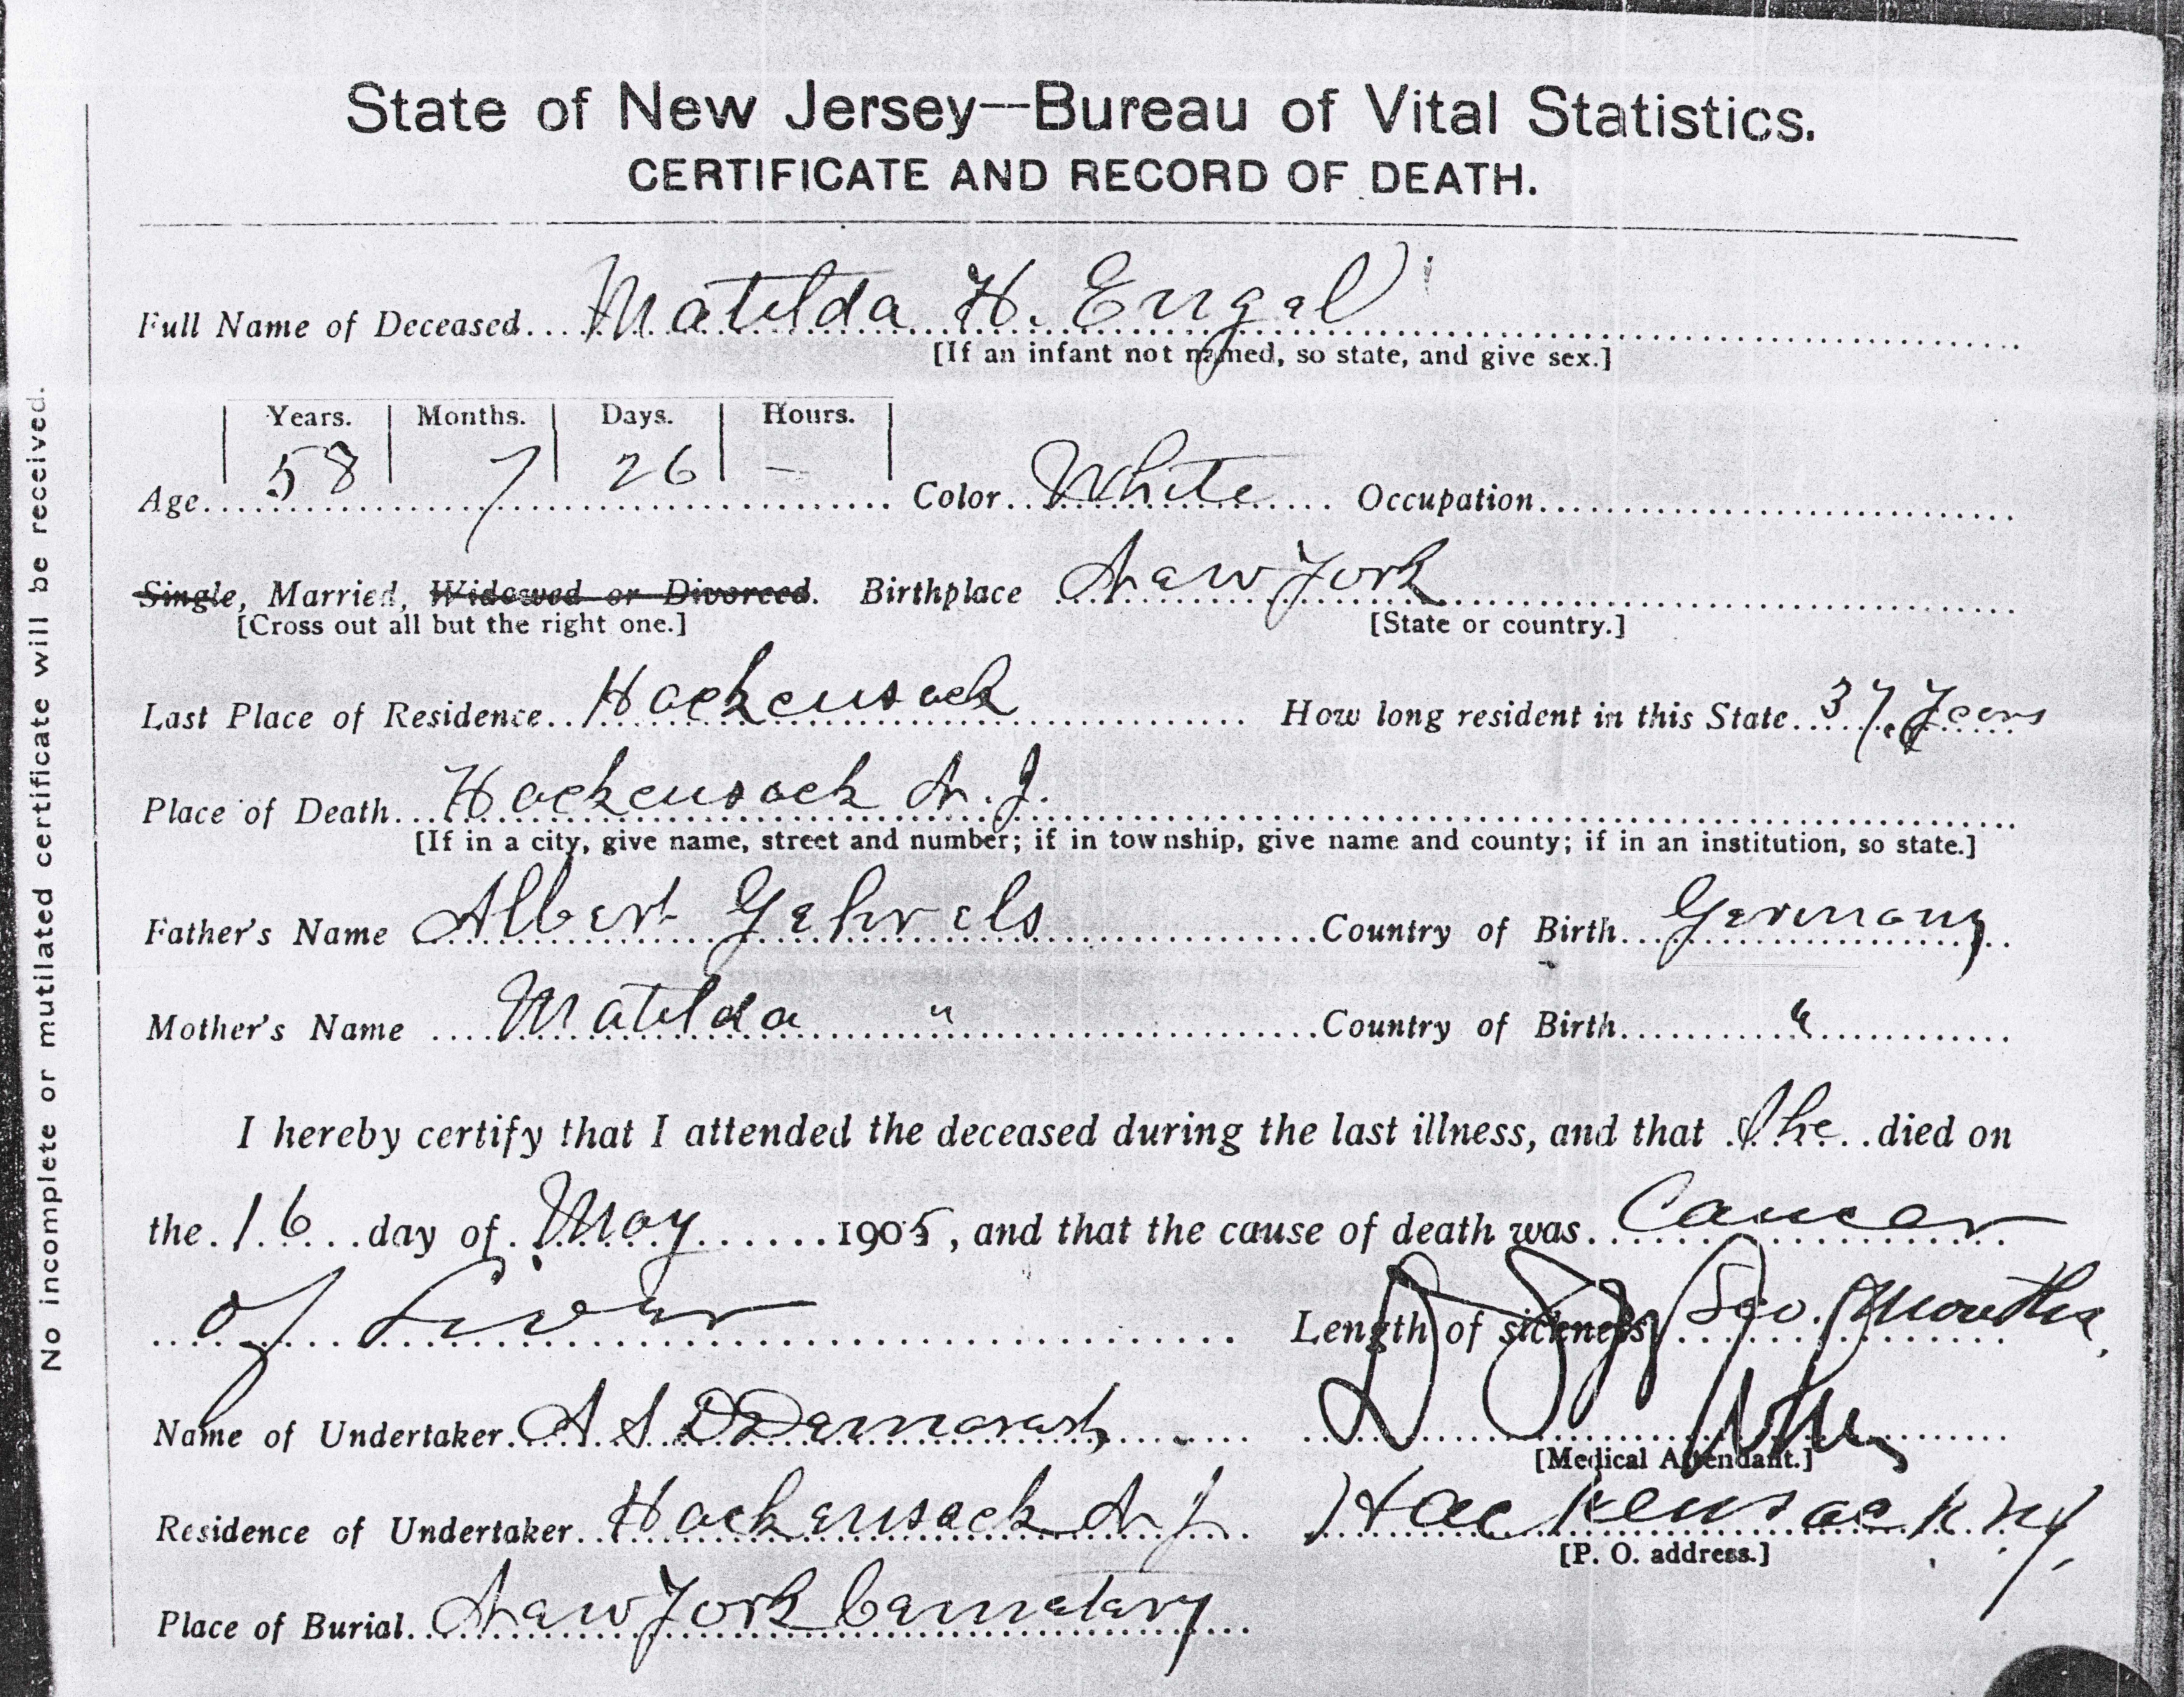 State of New Jersey—Bureau of Vital Statistics.
CERTIFICATE AND RECORD OF DEATH.
Full Name of Deceased Matilda H. Engel
[If an infant not named, so state, and give sex.]
Years. Months. Days. Hours.
Age 58 7 26 — Color White Occupation
Single, Married, Widowed or Divorced. Birthplace New York
[Cross out all but the right one.] [State or country.]
Last Place of Residence Hackensack How long resident in this State 37 Years
Place of Death Hackensack N. J.
[If in a city, give name, street and number; if in township, give name and county; if in an institution, so state.]
Father's Name Albert Gehrels Country of Birth Germany
Mother's Name Matilda " Country of Birth "
I hereby certify that I attended the deceased during the last illness, and that she died on
the 16 day of May 1905, and that the cause of death was Cancer
of Liver Length of sickness months
Name of Undertaker A S D Demarest
[Medical Attendant.]
Residence of Undertaker Hackensack N J Hackensack N.J.
[P. O. address.]
Place of Burial New York Cemetery
No incomplete or mutilated certificate will be received.